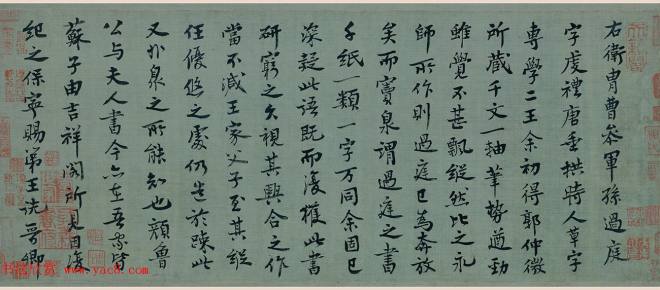 右衛冑曹參軍孫過庭
字虔禮唐垂拱時人草字
專學二王余初得郭仲微
所藏千文一軸筆勢遒勁
雖覺不甚飄縱然比之永
師所作則過庭已為奔放
矣而竇泉謂過庭之書
千紙一類一字万同余固已
深疑此語既而復獲此書
研窮之久視其興合之作
當不減王家父子至其縱
任優游之處仍造於疎此
又非泉之所能知也顏魯
公与夫人書今亦在吾家皆
蘇子由吉祥閣所見因復
紀之保寧賜第王詵晉卿
书法欣赏 www.yac8.com